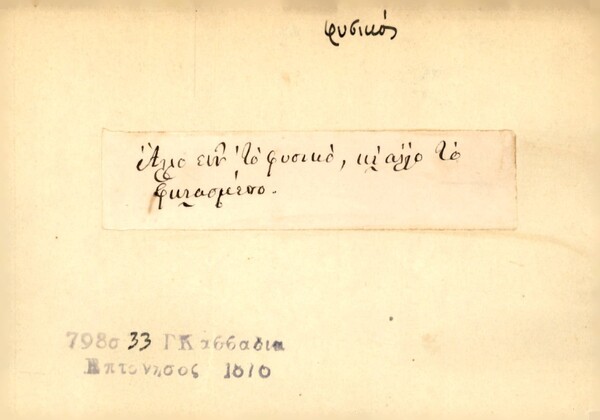 φυσικός
Ἄλλο εἶν' τὸ φυσικὸ, κι ἄλλο τὸ
φκιασμένο.
798σ 33 Γ Κασσαδια
Επτονησος 1870